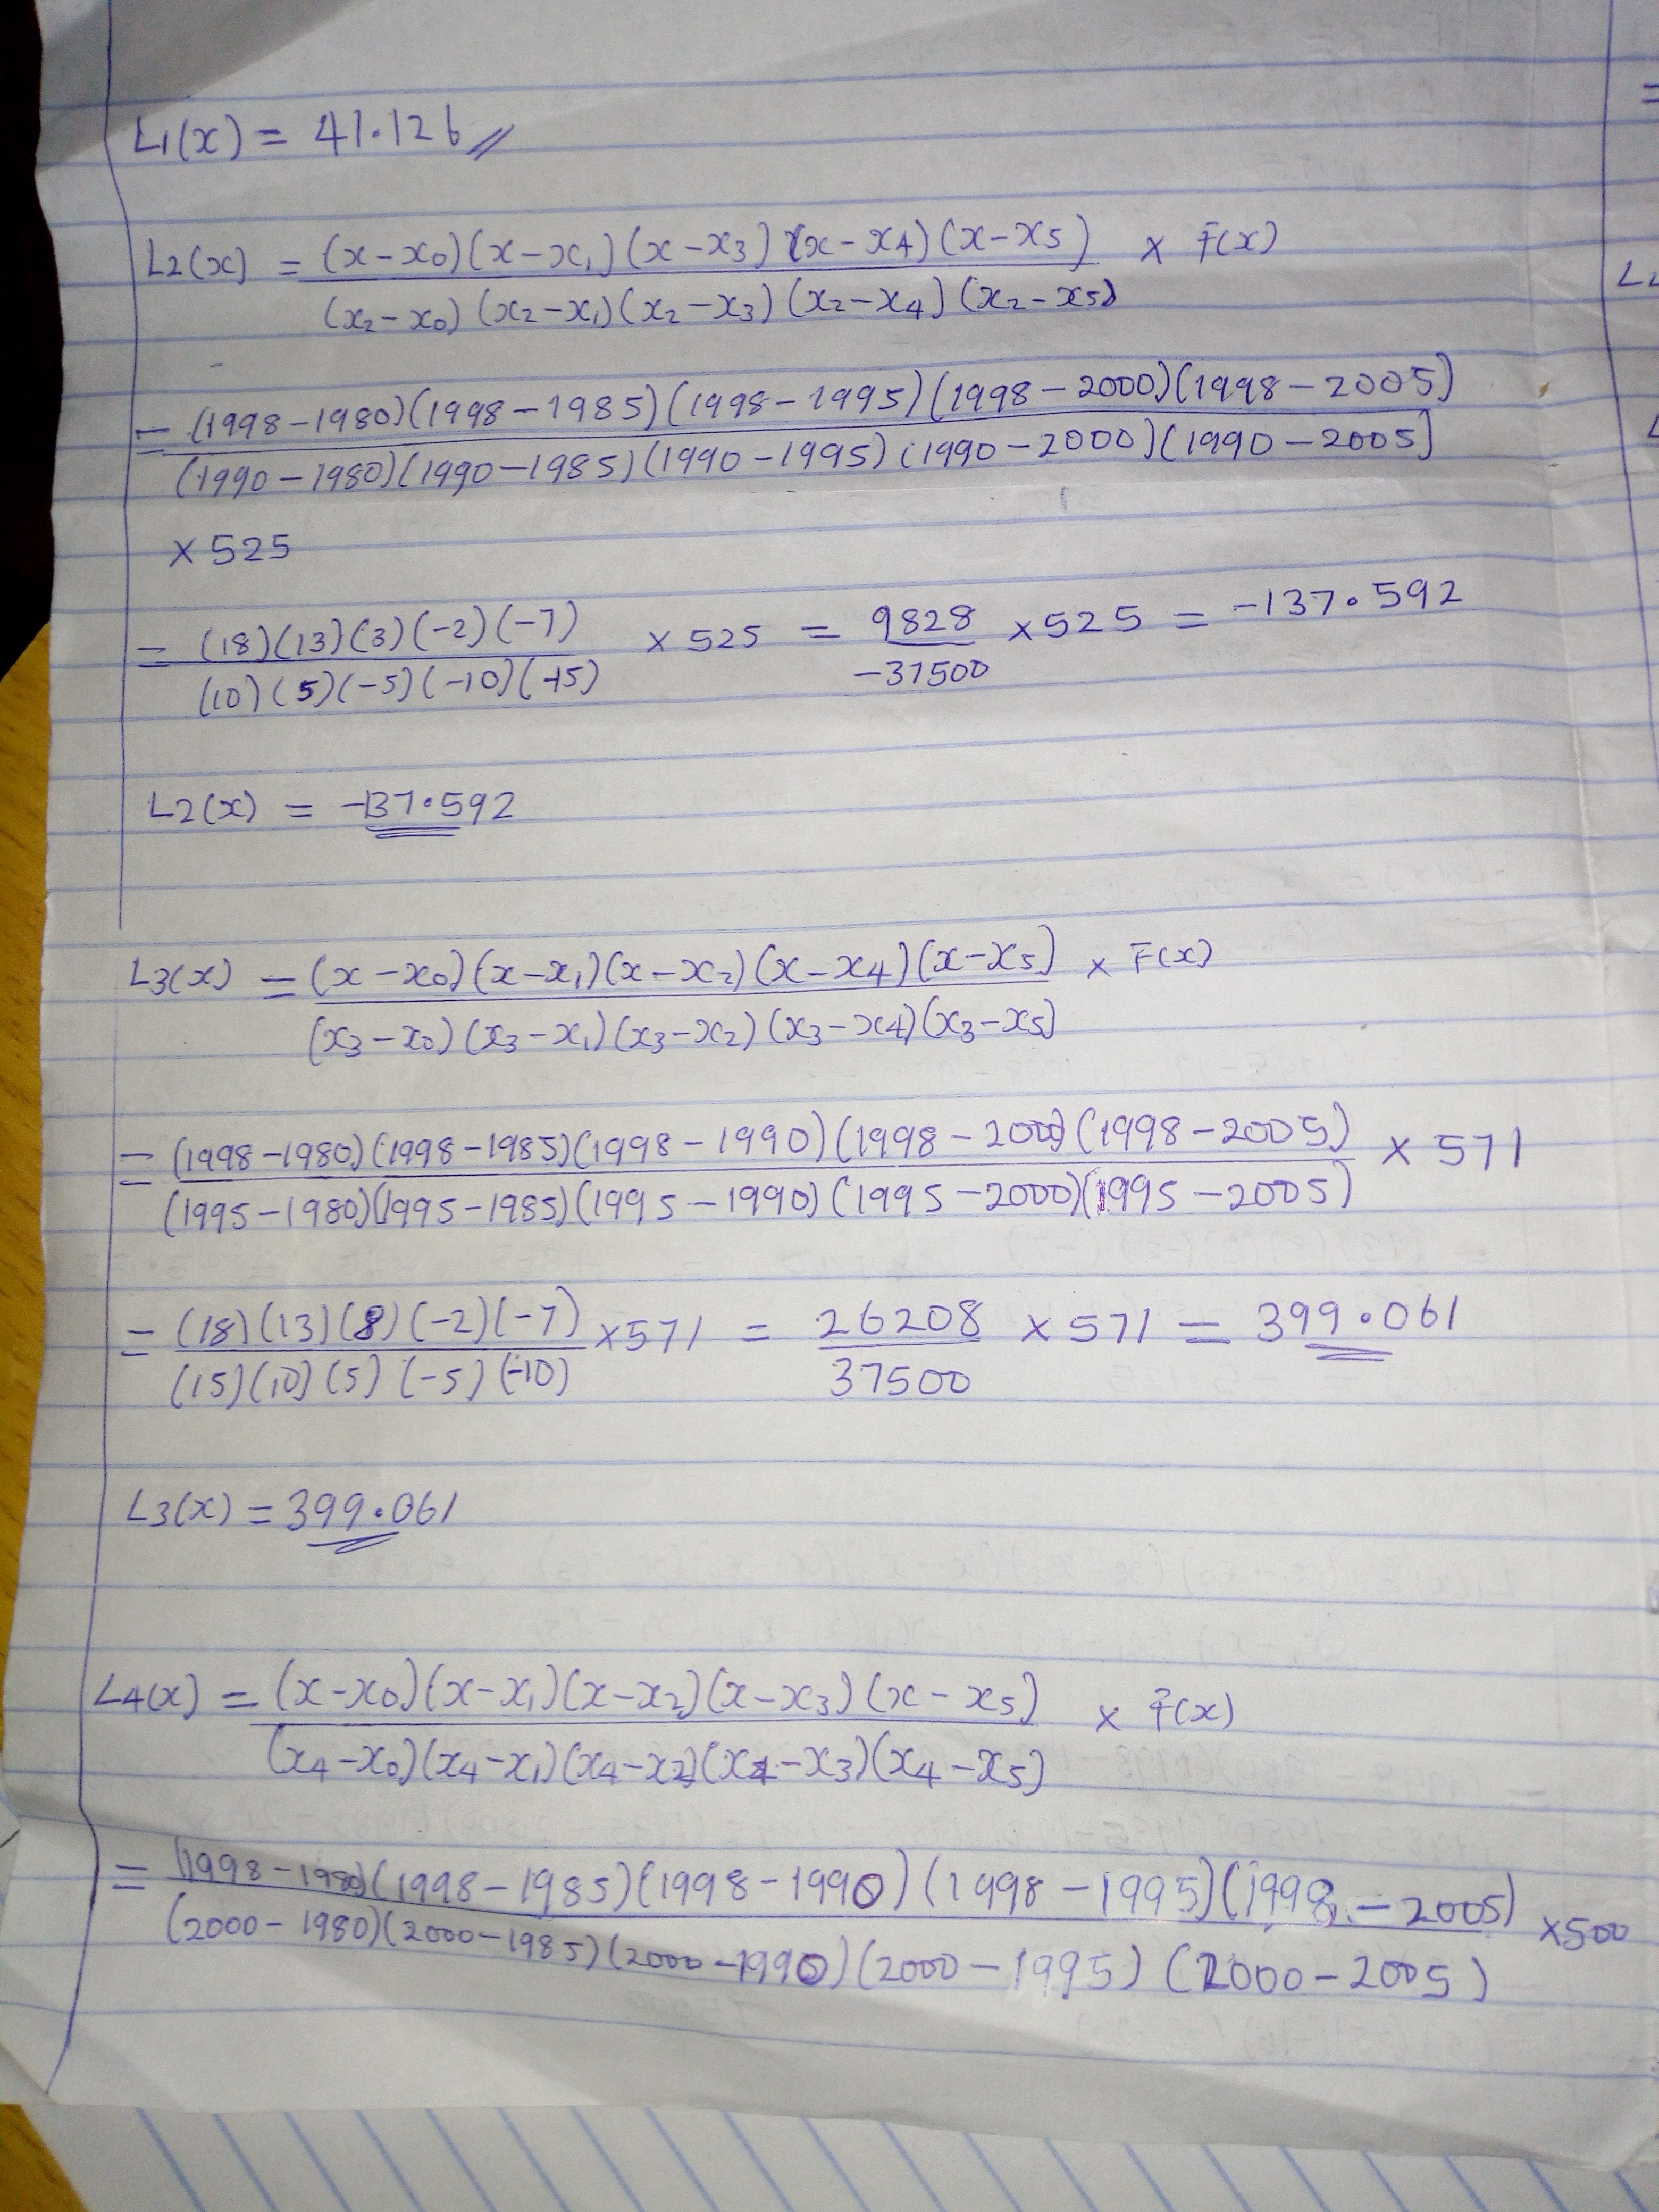 L1(x) = 41.126
L2(x) = (x-x0)(x-x1)(x-x3)(x-x4)(x-x5) × F(x)
(x2-x0)(x2-x1)(x2-x3)(x2-x4)(x2-x5)
= (1998-1980)(1998-1985)(1998-1995)(1998-2000)(1998-2005)
(1990-1980)(1990-1985)(1990-1995)(1990-2000)(1990-2005)
× 525
= (18)(13)(3)(-2)(-7) × 525 = 9828 × 525 = -137.592
(10)(5)(-5)(-10)(-15) -37500
L2(x) = -137.592
L3(x) = (x-x0)(x-x1)(x-x2)(x-x4)(x-x5) × F(x)
(x3-x0)(x3-x1)(x3-x2)(x3-x4)(x3-x5)
= (1998-1980)(1998-1985)(1998-1990)(1998-2000)(1998-2005) × 571
(1995-1980)(1995-1985)(1995-1990)(1995-2000)(1995-2005)
= (18)(13)(8)(-2)(-7) ×571 = 26208 × 571 = 399.061
(15)(10)(5)(-5)(-10) 37500
L3(x) = 399.061
L4(x) = (x-x0)(x-x1)(x-x2)(x-x3)(x-x5) × F(x)
(x4-x0)(x4-x1)(x4-x2)(x4-x3)(x4-x5)
= (1998-1980)(1998-1985)(1998-1990)(1998-1995)(1998-2005) ×500
(2000-1980)(2000-1985)(2000-1990)(2000-1995)(2000-2005)